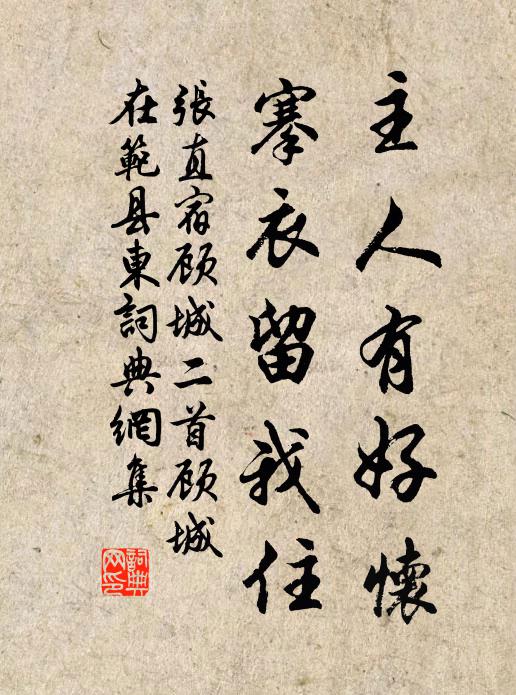 主人有好懷
搴衣留我住
張直宿顾城二首顾城
在範县東詞典網集
詞典網印